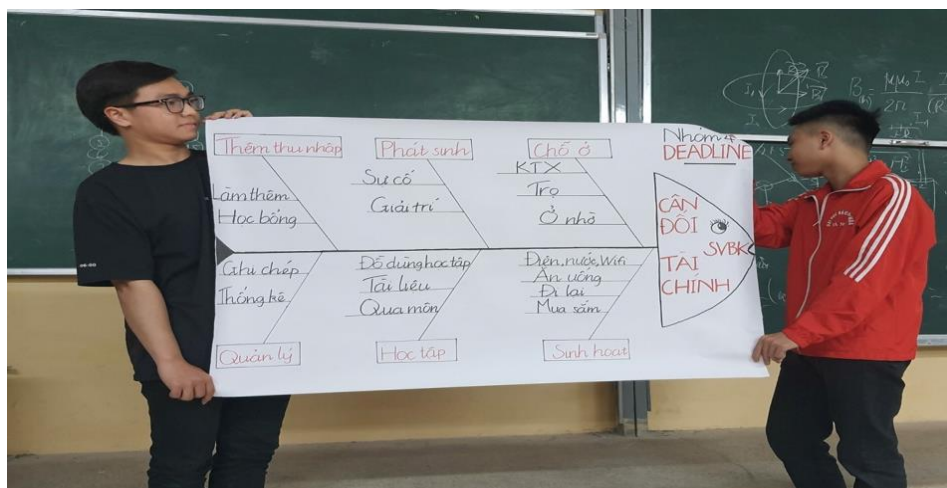 Thêm thu nhập
Làm thêm
Học bổng
Phát sinh
Sự cố
Giải trí
Chỗ ở
KTX
Trọ
Ở nhờ
Nhóm 4
DEADLINE
CÂN
ĐỐI
TÀI
CHÍNH
SVBK
Ghi chép
Thống kê
Quản lý
Đồ dùng học tập
Tài liệu
Qua môn
Học tập
Điện, nước, Wifi
Ăn uống
Đi lại
Mua sắm
Sinh hoạt